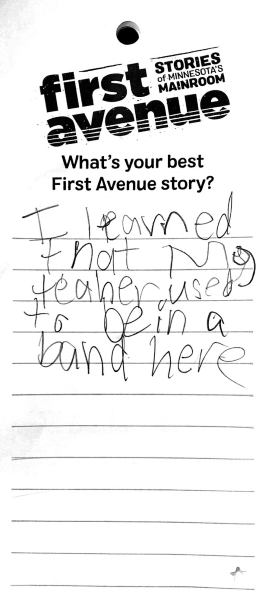 first
avenue
STORIES
of MINNESOTA'S
MAINROOM
What's your best
First Avenue story?
I learned
that My
teaher used
to be in a
band here